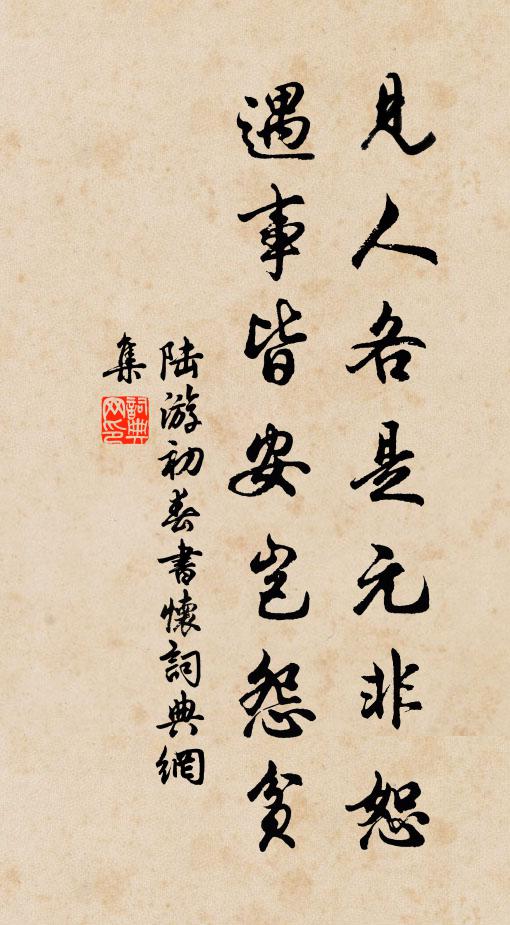 見人各是元非恕
遇事皆安豈怨貧
陸游初春書懷詞典網
集
詞典
网印